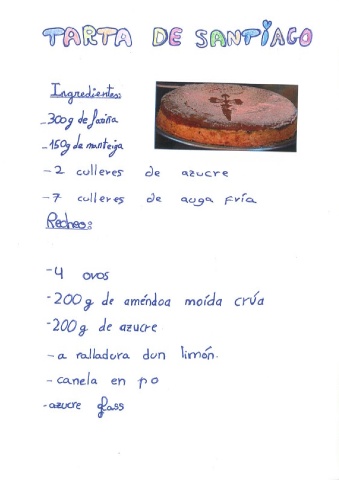 TARTA DE SANTIAGO
Ingredientes:
-300g de fariña
-150g de manteiga
-2 culleres de azucre
-7 culleres de auga fría
Recheo:
-4 ovos
-200g de améndoa moída crúa
-200g de azucre
-a ralladura dun limón.
-canela en po
-azucre glass